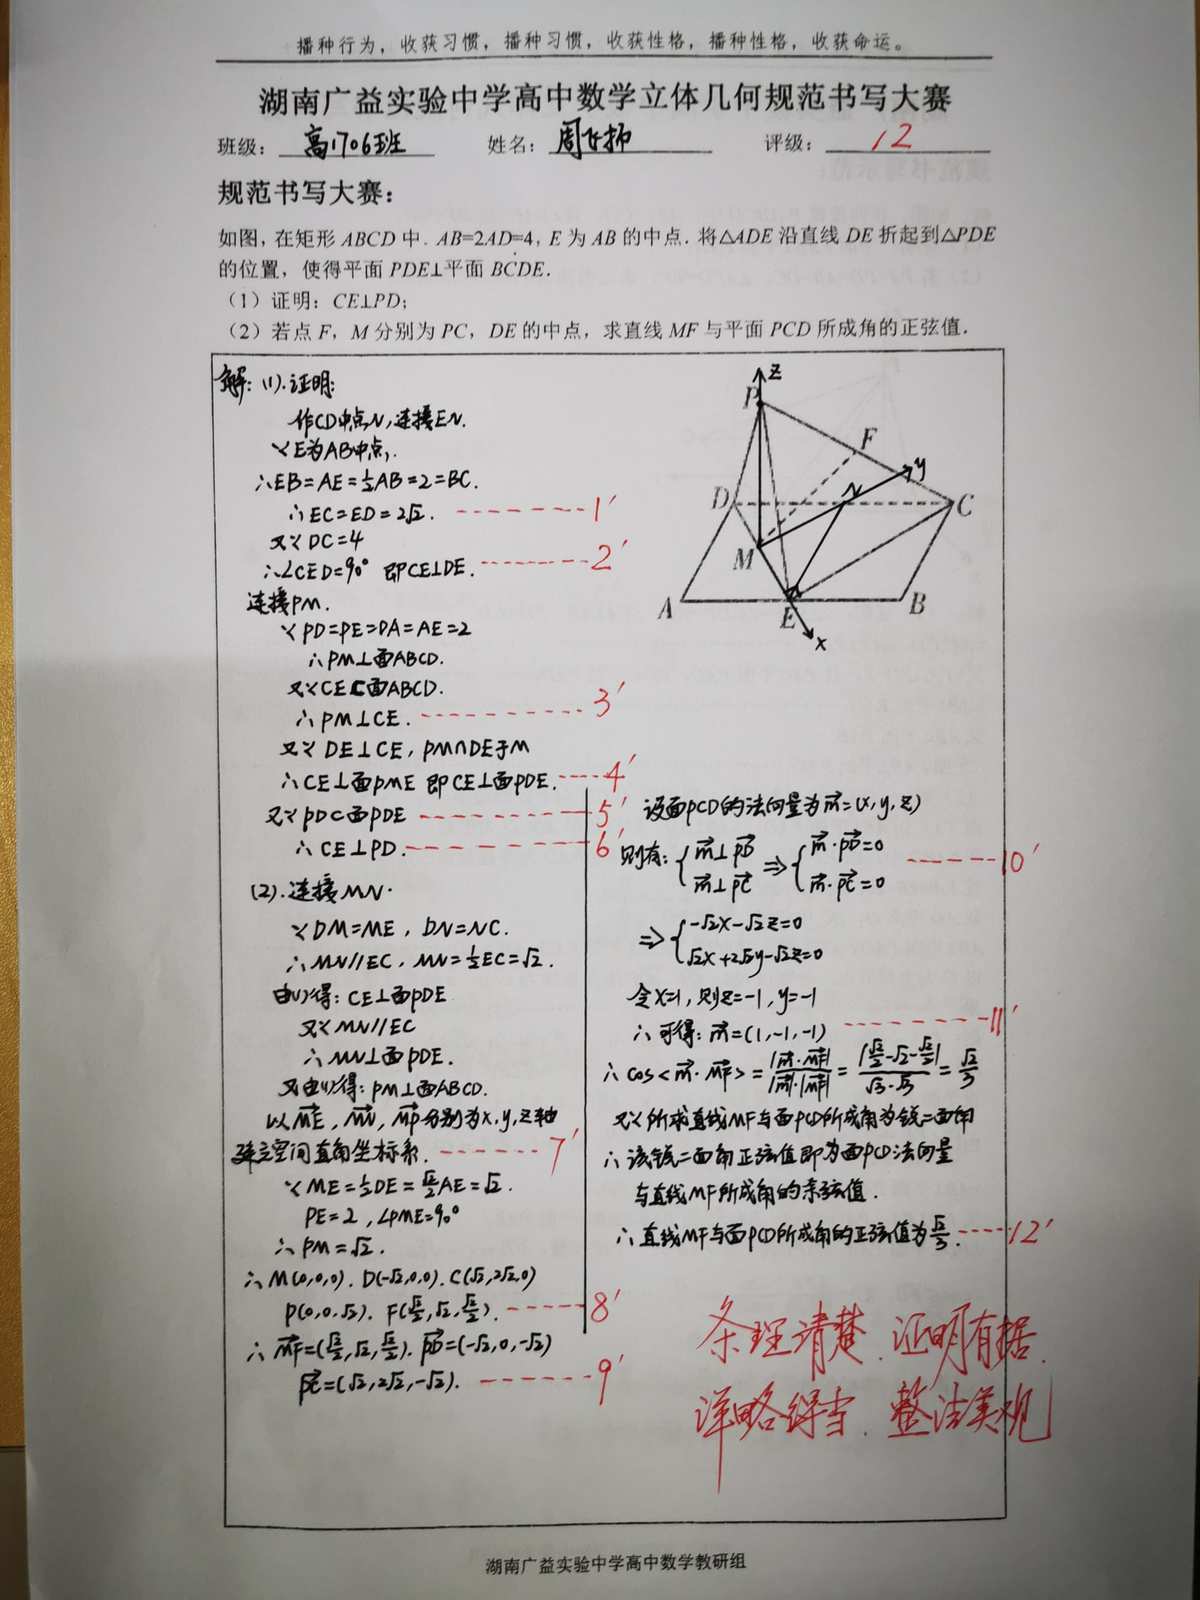 播种行为，收获习惯，播种习惯，收获性格，播种性格，收获命运。
湖南广益实验中学高中数学立体几何规范书写大赛
班级：高1706班 姓名：周飞扬 评级：12
规范书写大赛：
如图，在矩形ABCD中．AB=2AD=4，E为AB的中点．将△ADE沿直线DE折起到△PDE
的位置，使得平面PDE⊥平面BCDE．
（1）证明：CE⊥PD；
（2）若点F，M分别为PC，DE的中点，求直线MF与平面PCD所成角的正弦值．
解：(1).证明：
作CD中点N，连接EN.
∵E为AB中点，
∴EB=AE=½AB=2=BC.
∴EC=ED=2√2. 1′
又∵DC=4
∴∠CED=90° 即CE⊥DE. 2′
连接PM.
∵PD=PE=DA=AE=2
∴PM⊥面ABCD.
又∵CE⊂面ABCD.
∴PM⊥CE. 3′
又∵DE⊥CE，PM∩DE于M
∴CE⊥面PME 即CE⊥面PDE. 4′
又∵PD⊂面PDE 5′
∴CE⊥PD. 6′
(2).连接MN.
∵DM=ME，DN=NC.
∴MN//EC，MN=½EC=√2.
由(1)得：CE⊥面PDE
又∵MN//EC
∴MN⊥面PDE.
又由(1)得：PM⊥面ABCD.
以ME，MN，MP分别为x,y,z轴
建立空间直角坐标系. 7′
∵ME=½DE=√2/2AE=√2.
PE=2，∠PME=90°
∴PM=√2.
∴M(0,0,0). D(-√2,0,0). C(√2,2√2,0)
P(0,0,√2). F(√2/2,√2,√2/2). 8′
∴MF=(√2/2,√2,√2/2). PD=(-√2,0,-√2)
PC=(√2,2√2,-√2). 9′
z
P
F
y
D
N
C
M
A
E
B
x
设面PCD的法向量为m=(x,y,z)
则有：{m⊥PD ⇒ {m·PD=0
m⊥PC m·PC=0 10′
⇒{-√2x-√2z=0
√2x+2√2y-√2z=0
令x=1，则z=-1，y=-1
∴可得：m=(1,-1,-1) 11′
∴cos<m·MF>=|m·MF|/|m|·|MF|=|√2/2-√2-√2/2|/√3·√3=√2/3
又∵所求直线MF与面PCD所成角为锐二面角
∴该锐二面角正弦值即为面PCD法向量
与直线MF所成角的余弦值.
∴直线MF与面PCD所成角的正弦值为√2/3. 12′
条理清楚．证明有据．
详略得当．整洁美观
湖南广益实验中学高中数学教研组